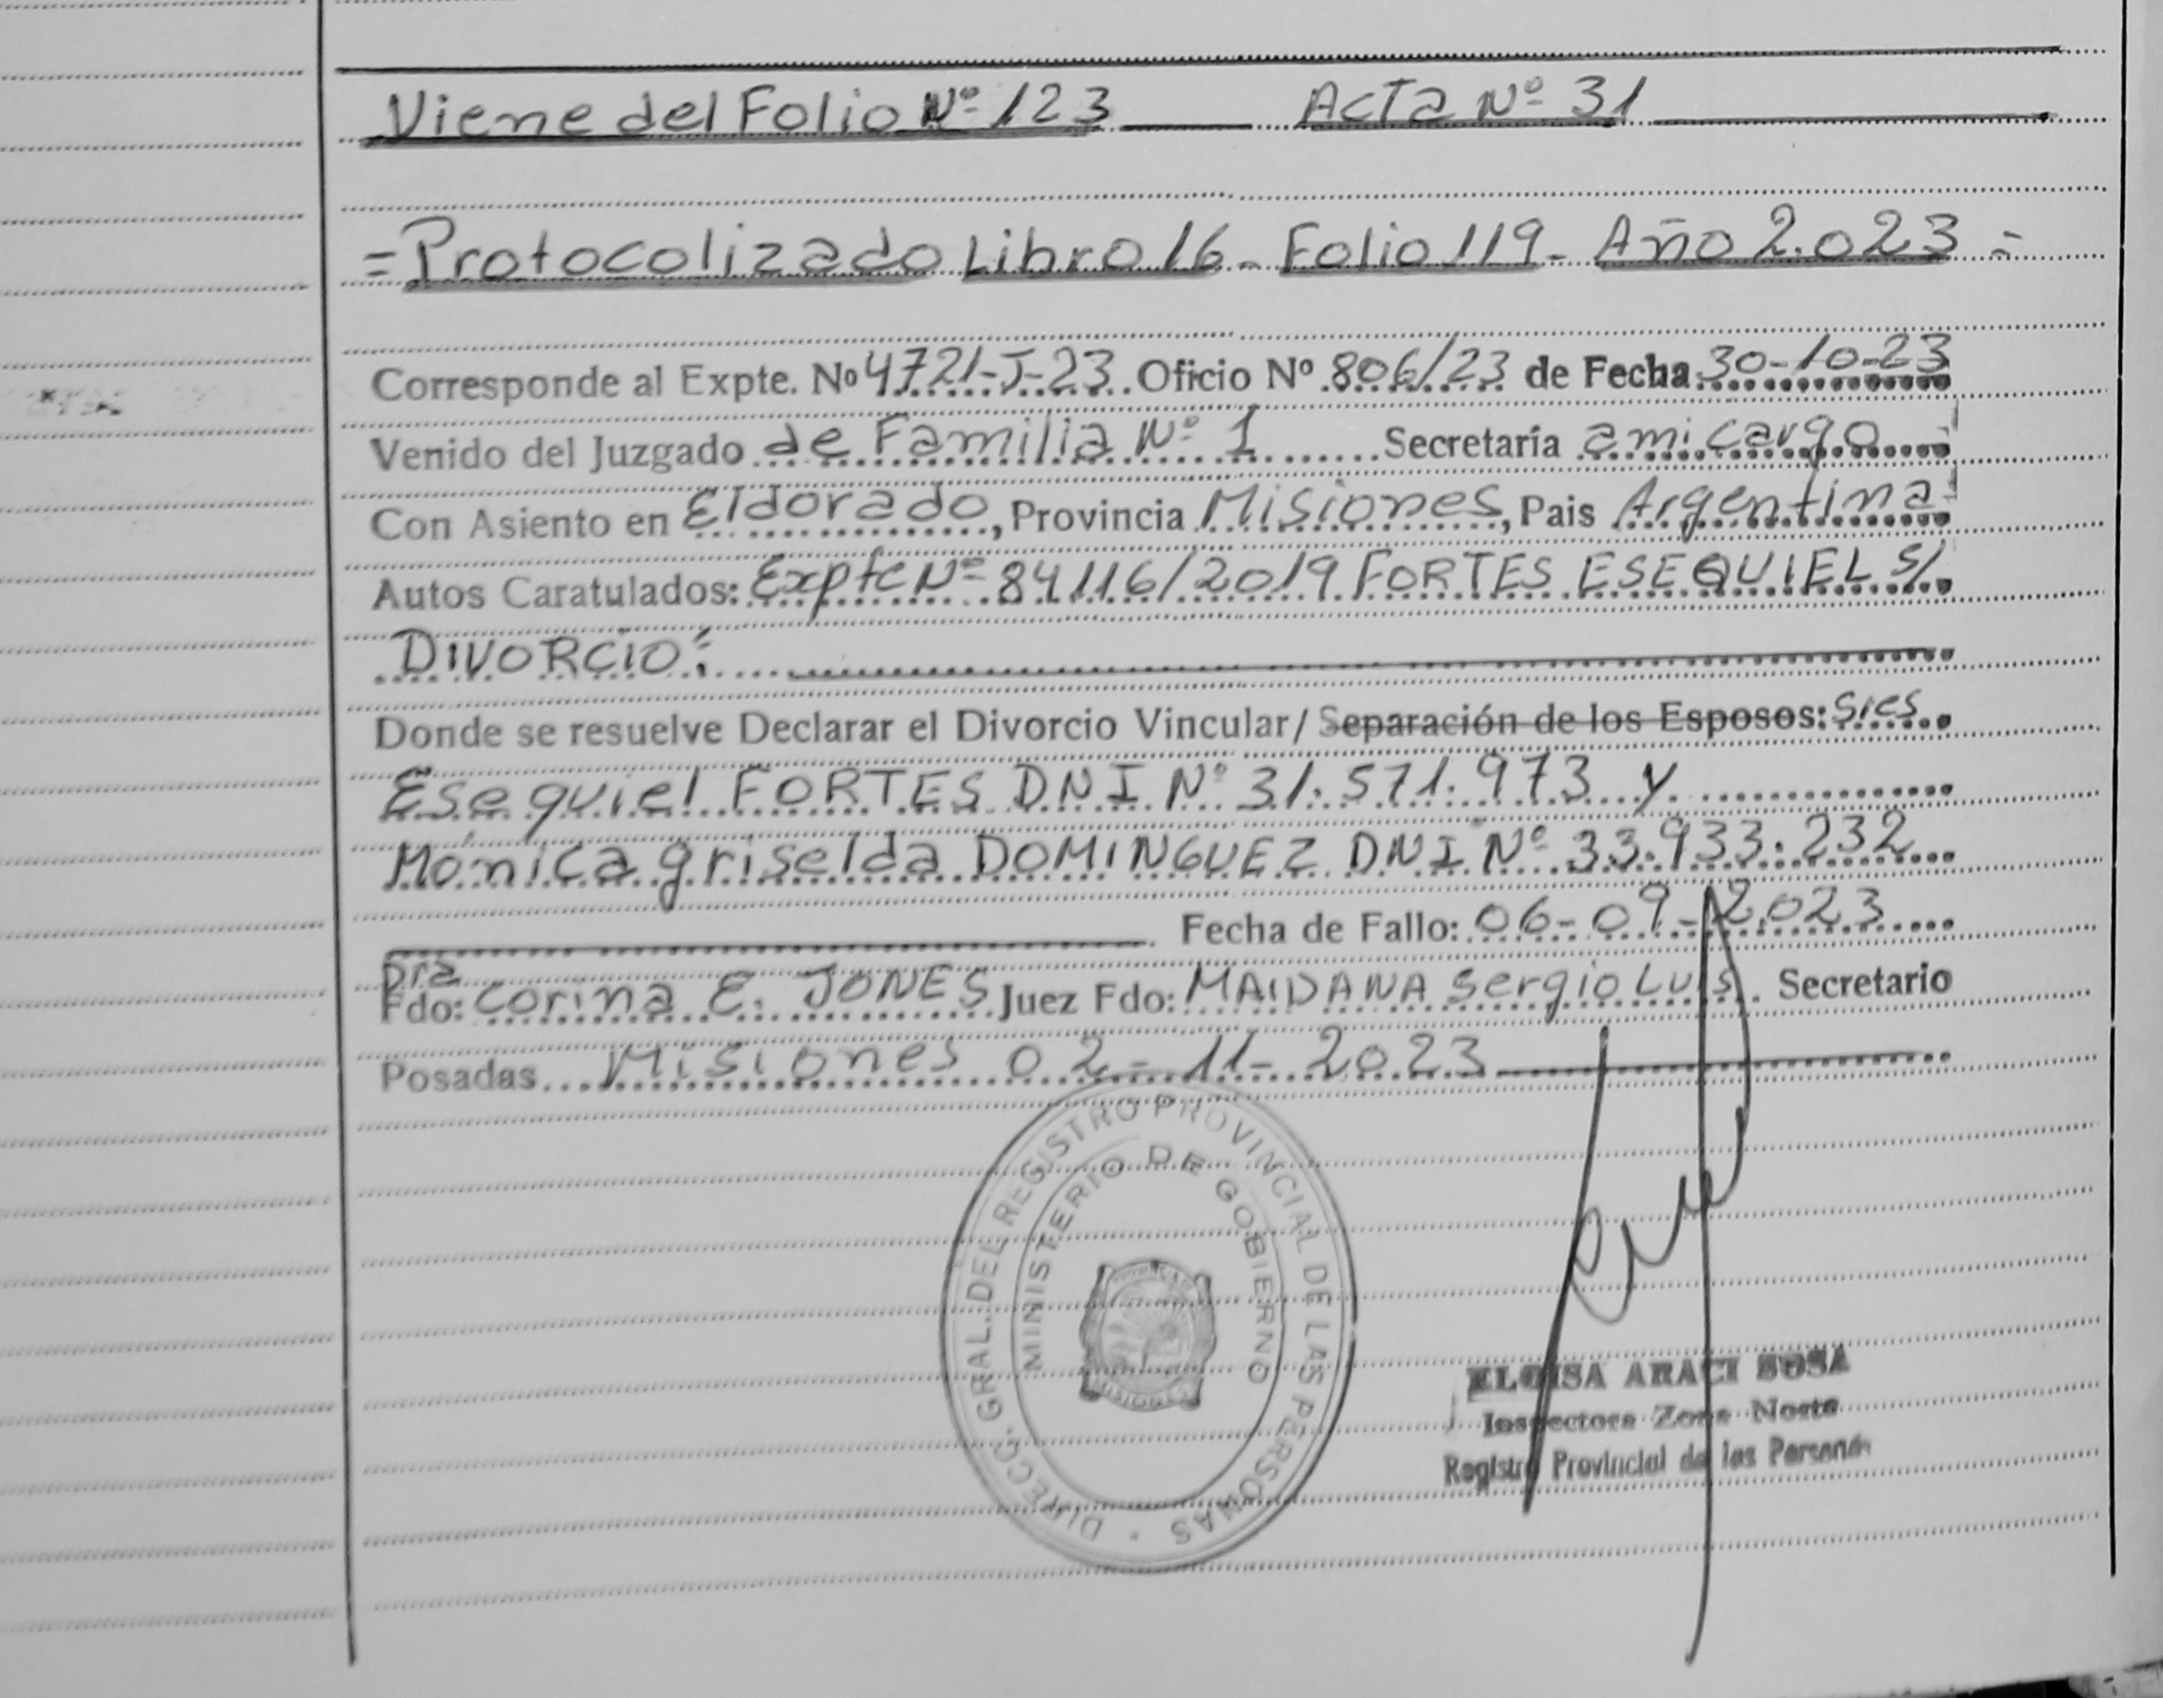 Viene del Folio Nº 123 Acta Nº 31
= Protocolizado Libro 16 - Folio 119 - Año 2.023 =
Corresponde al Expte. Nº 4721-J-23 Oficio Nº 806/23 de Fecha 30-10-23
Venido del Juzgado de Familia Nº 1 Secretaría a mi cargo
Con Asiento en Eldorado, Provincia Misiones, Pais Argentina
Autos Caratulados: Expte Nº 84116/2019 FORTES ESEQUIEL S/
DIVORCIO:
Donde se resuelve Declarar el Divorcio Vincular/ Separación de los Esposos: Sres
Esequiel FORTES DNI Nº 31.571.973 y
Mónica griselda DOMINGUEZ DNI Nº 33.933.232
Fecha de Fallo: 06-09-2.023
Dra
Fdo: Corina E. JONES Juez Fdo: MAIDANA Sergio Luis Secretario
Posadas Misiones 02-11-2023
DIRECC. GRAL. DEL REGISTRO PROVINCIAL DE LAS PERSONAS
MINISTERIO DE GOBIERNO
ELOISA ARACI SOSA
Inspectora Zona Norte
Registro Provincial de las Personas